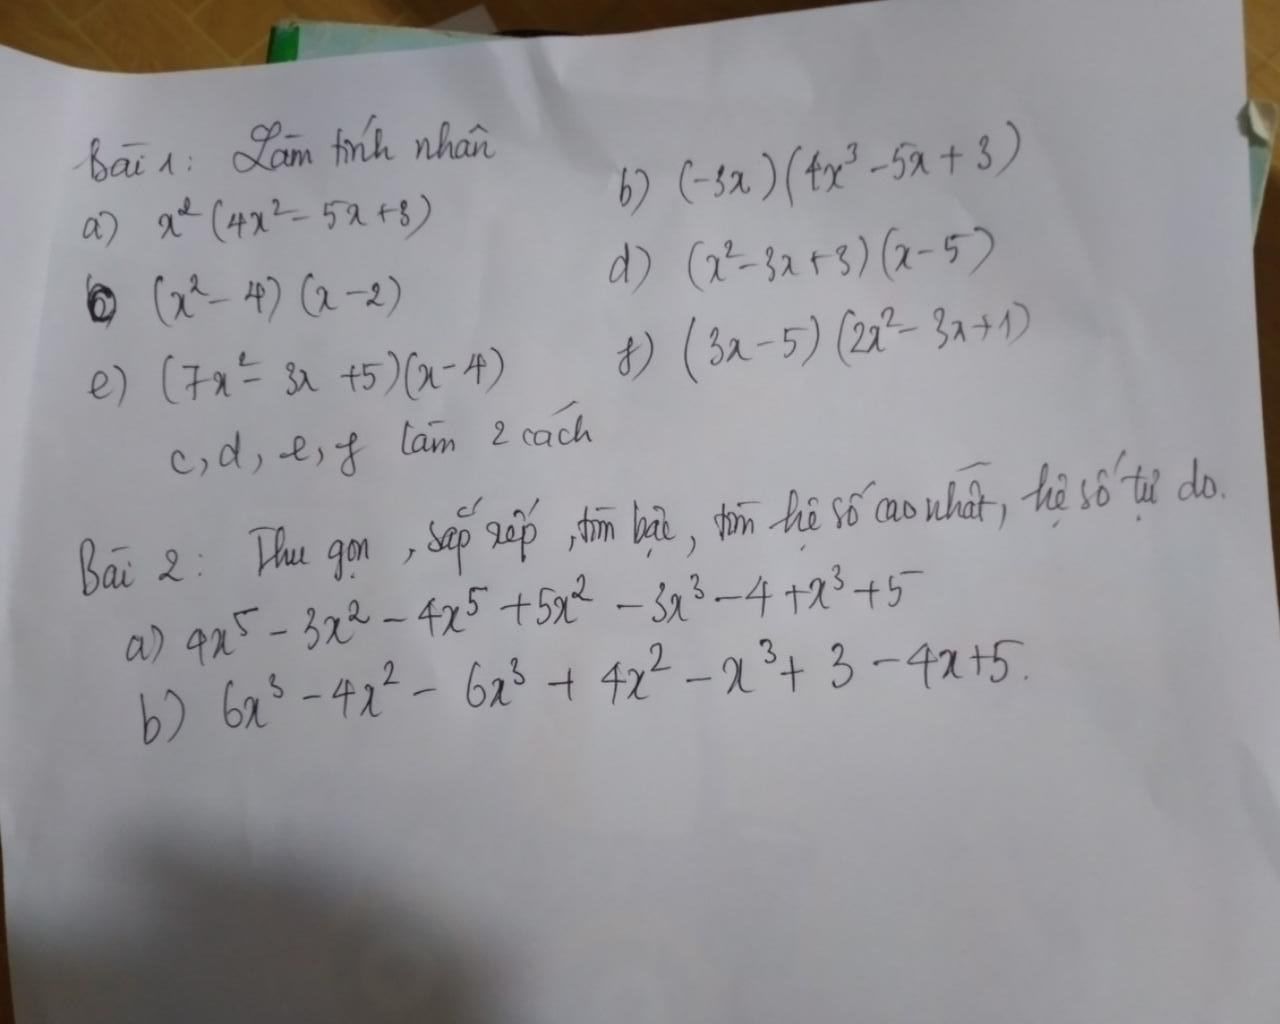 Bài 1: Làm tính nhân
a) x² (4x² - 5x + 3)
b) (-3x) (4x³ - 5x + 3)
c) (x² - 4) (x - 2)
d) (x² - 3x + 3) (x - 5)
e) (7x² - 3x + 5)(x - 4)
f) (3x - 5) (2x² - 3x + 1)
c, d, e, f làm 2 cách
Bài 2: Thu gọn, sắp xếp, tìm bậc, tìm hệ số cao nhất, hệ số tự do.
a) 4x⁵ - 3x² - 4x⁵ + 5x² - 3x³ - 4 + x³ + 5
b) 6x³ - 4x² - 6x³ + 4x² - x³ + 3 - 4x + 5.